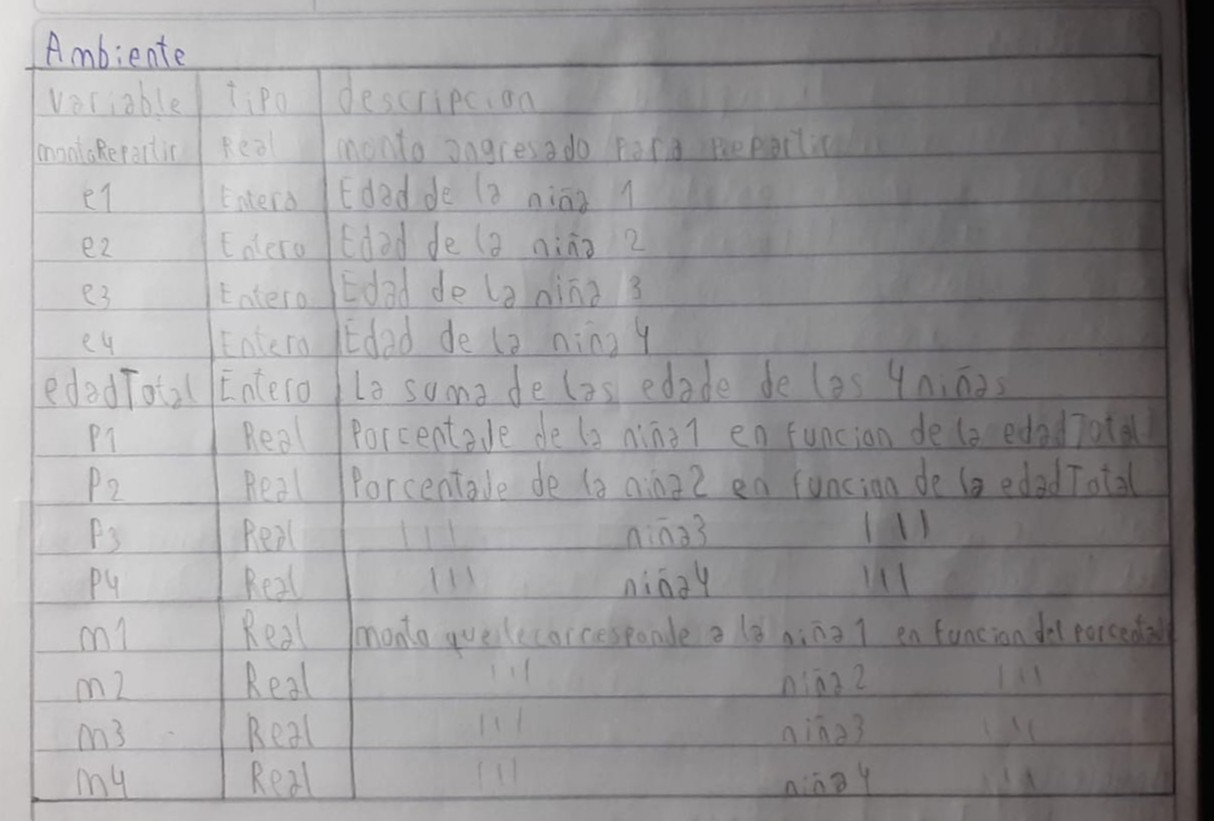 Ambiente
variable tipo descripcion
montoRepartir Real monto ingresado para Repartir
e1 Entero Edad de la niña 1
e2 Entero Edad de la niña 2
e3 Entero Edad de la niña 3
e4 Entero Edad de la niña 4
edadTotal Entero La suma de las edade de las 4 niñas
P1 Real Porcentaje de la niña1 en funcion de la edadTotal
P2 Real Porcentaje de la niña2 en funcion de la edadTotal
P3 Real ||| niña3 |||
P4 Real ||| niña4 |||
m1 Real monto que le corresponde a la niña1 en funcion del porcentaj
m2 Real ||| niña2 |||
m3 Real ||| niña3 |||
m4 Real ||| niña4 |||